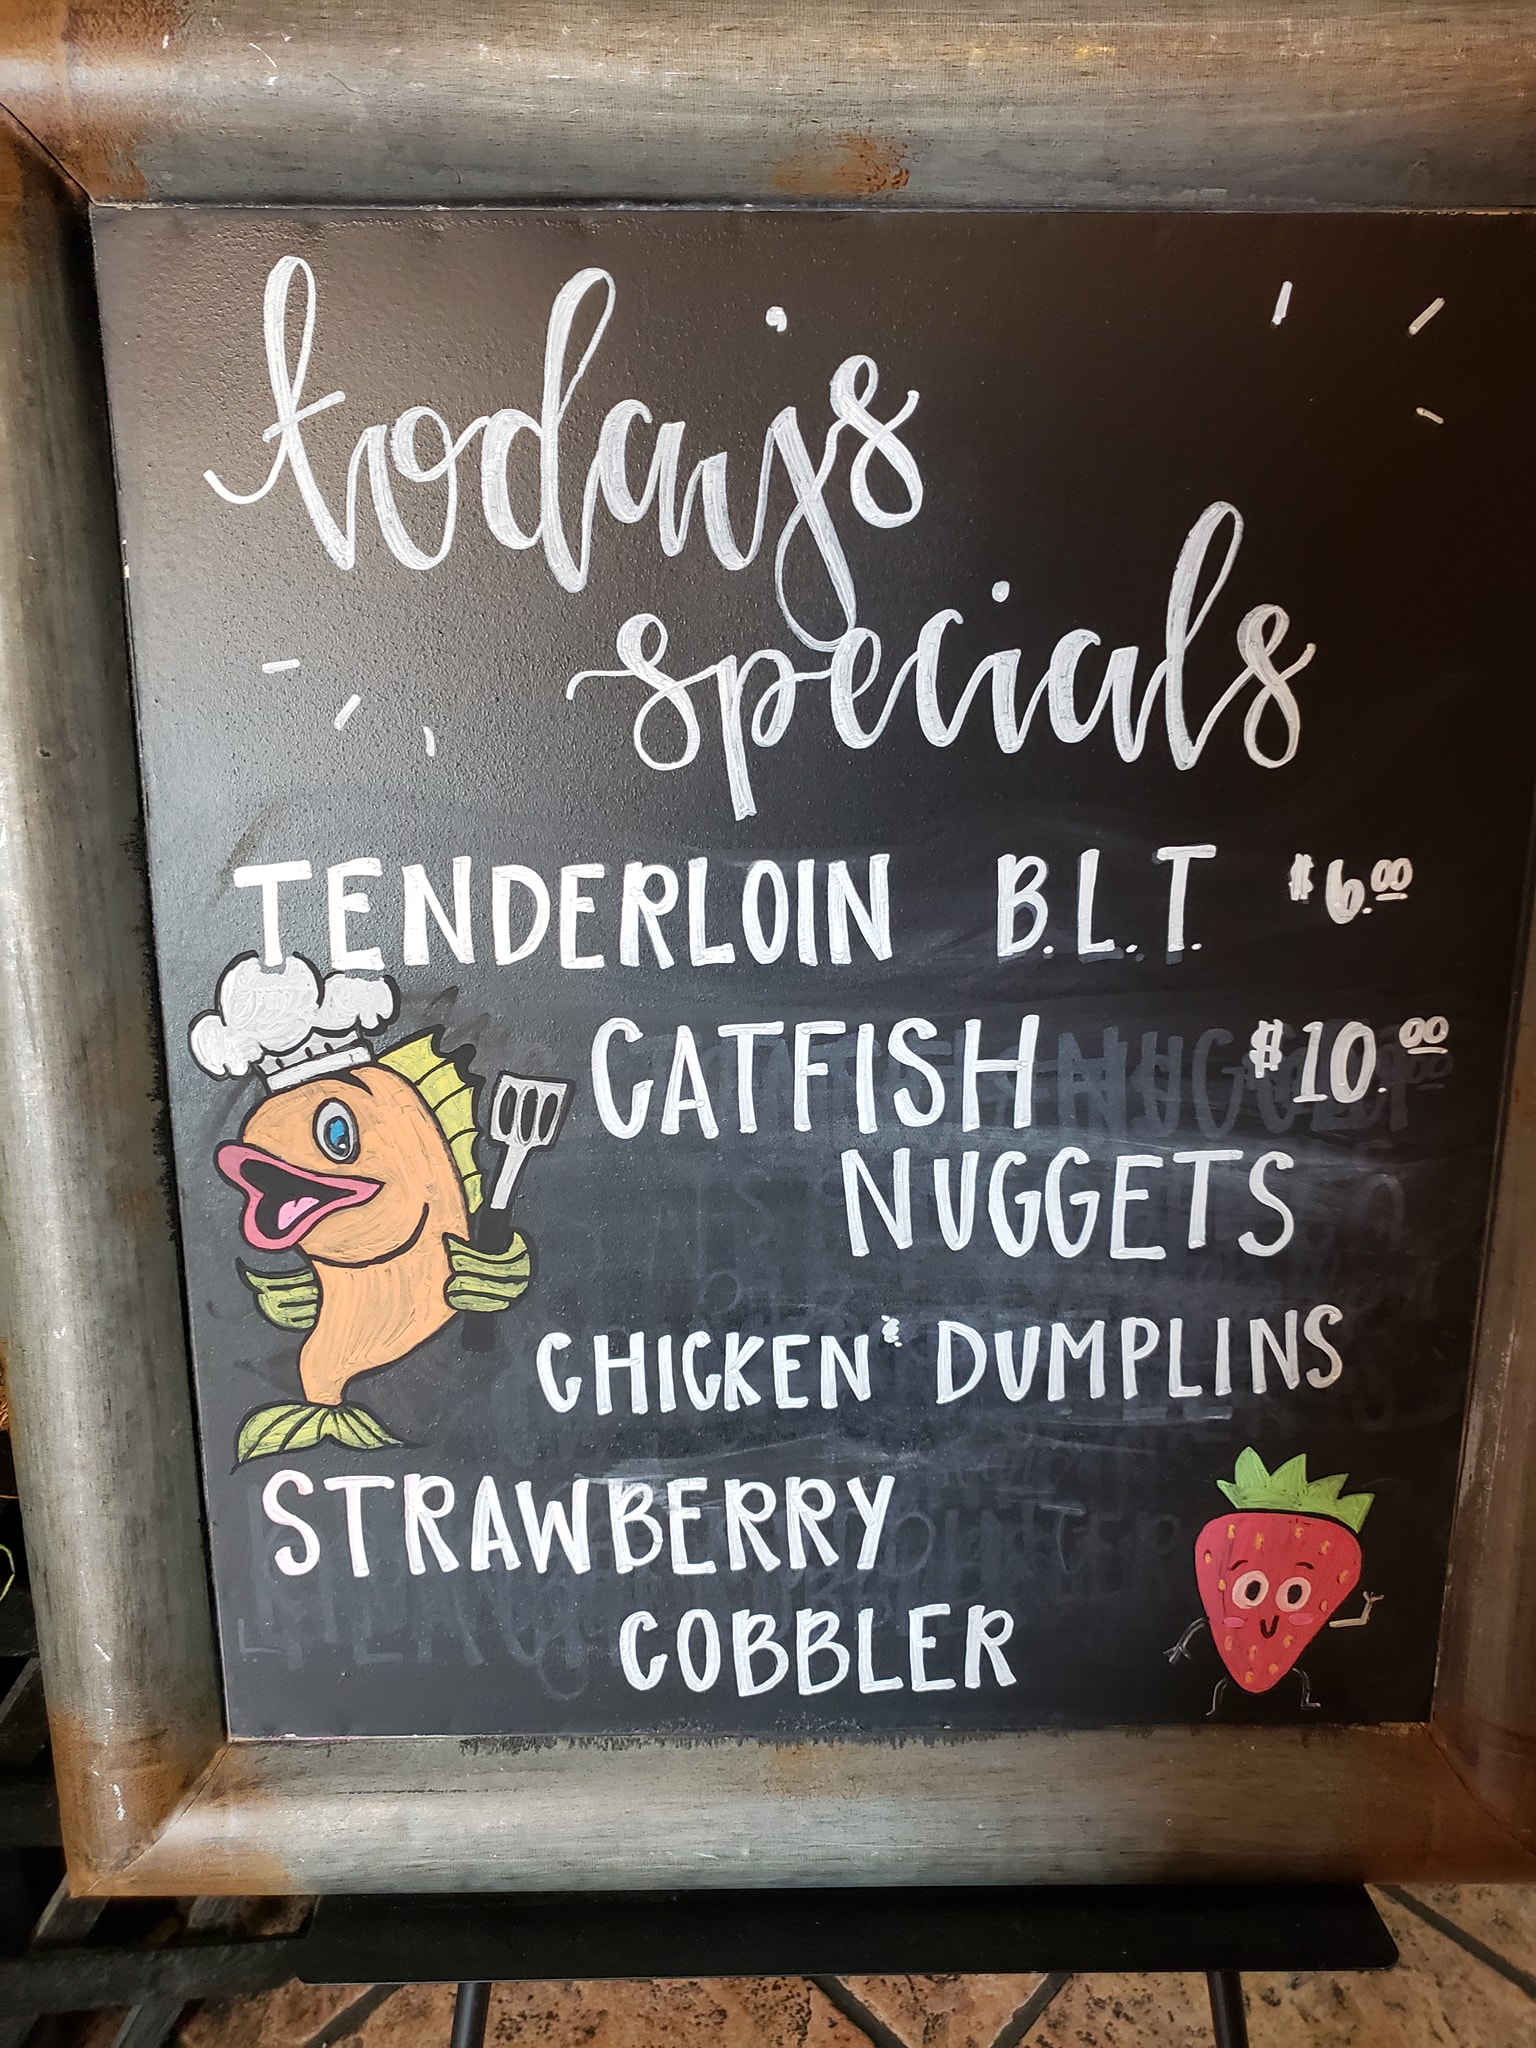 today's
specials
TENDERLOIN B.L.T. $6.00
CATFISH $10.00
NUGGETS
CHICKEN & DUMPLINS
STRAWBERRY
COBBLER